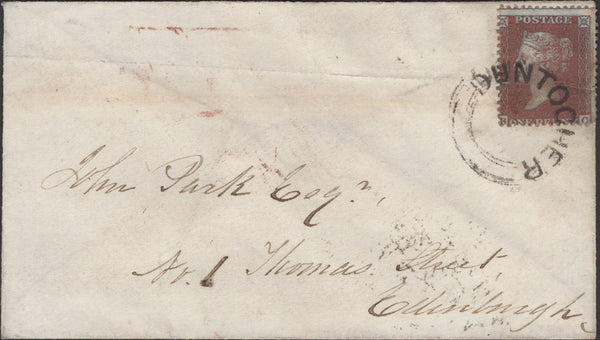 POSTAGE
DUNTOCHER
John Park Esqr,
No. 1 Thomas Street,
Edinburgh